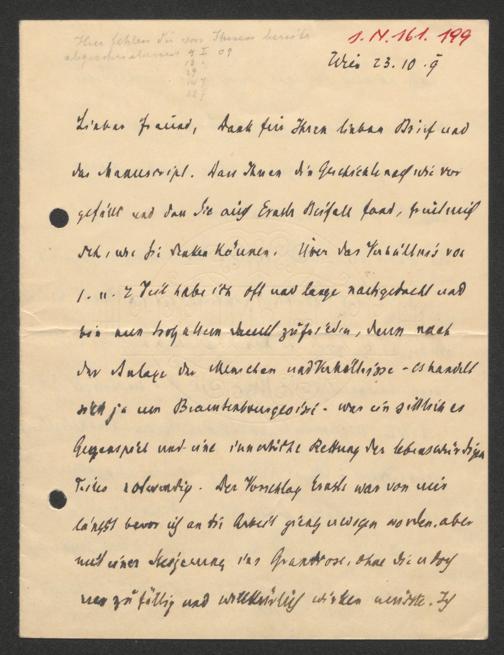 Hier fehlen die von Ihnen bereits
abgeschriebenen 4 I 09
I.N. 161.199
Wien 23.10.9
Lieber Freund, Dank für Ihren lieben Brief und
das Manuscript. Dass Ihnen die Geschichte nach wie vor
gefällt und dass sie auch Ernsts Beifall fand, freut mich
sehr, wie Sie denken können. Über das Verhältnis von
1. u. 2 Teil habe ich oft und lange nachgedacht und
bin nun trotz allem damit zufrieden, denn nach
der Anlage der Menschen und Verhältnisse - es handelt
sich ja um Beamtenbourgeoisie - war ein sittliches
Gegenspiel und eine innerliche Rettung der lebenswürdigen
Teiles notwendig. Der Vorschlag Ernsts war von mir
längst bevor ich an die Arbeit gieng erwogen worden, aber
mit einer Steigerung ins Grandiose, ohne die er doch
nur zufällig und willkürlich wirken müsste. Ich